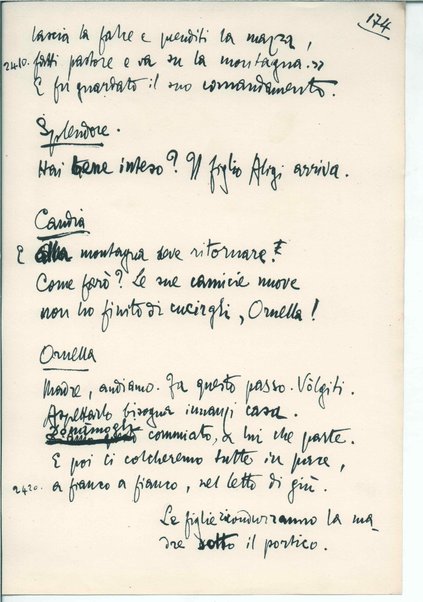 174
lascia la falce e prenditi la mazza,
2410. fatti pastore e va su la montagna."
E fu guardato il suo comandamento.
Splendore.
Hai bene inteso? Il figlio Aligi arriva.
Candia
E alla montagna deve ritornare!
Come farò? Le sue camicie nuove
non ho finito di cucirgli, Ornella!
Ornella
Madre, andiamo. Fa questo passo. Vòlgiti.
Aspettarlo bisogna innanzi casa.
commiato, a lui che parte.
E poi ci colcheremo tutte in pace,
2420. a fianco a fianco, nel letto di giù.
Le figlie ricondurranno la ma-
dre sotto il portico.